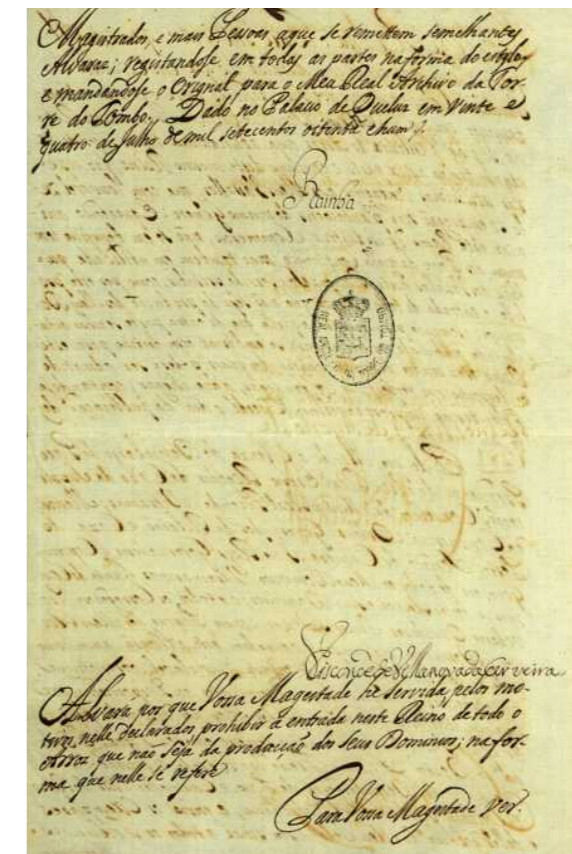 Magistrados, e mais Pessoas, aque se remettem semelhantes
Alvaraz; registandose em todas as partes na forma do estylo,
e mandandose o Original para o Meu Real Archivo da Tor-
re do Tombo. Dado no Palacio de Queluz em Vinte e
quatro de Julho de mil setecentos oitenta e hum
Rainha
Visconde de Villanova da Cerveira
Alvará por que Vossa Magestade he servida, pelos mo-
tivos nelle declarados, prohibir a entrada neste Reino de todo o
Arroz que não seja da producção dos seus Dominios; na for-
ma que nelle se refere
Para Vossa Magestade ver.